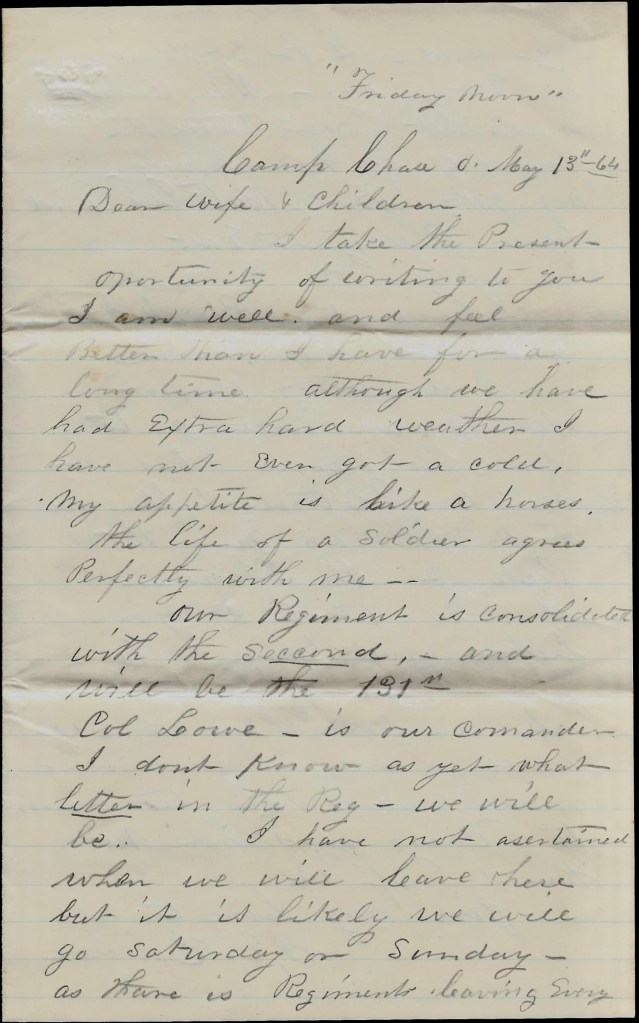 "Friday Morn"
Camp Chase O. May 13"-64
Dear Wife & Children
I take the Present
oportunity of writing to you
I am well. and feel
Better than I have for a
long time. although we have
had Extra hard weather I
have not Even got a cold,
My appetite is like a horses.
the life of a Soldier agrees
Perfectly with me --
our Regiment is consolidated
with the Seccond, - and
will be the 131st
Col Lowe - is our comander
I dont Know as yet what
letter in the Reg - we will
be.. I have not asertained
when we will leave here
but it is likely we will
go Saturday or Sunday -
as thare is Regiments leaving Every